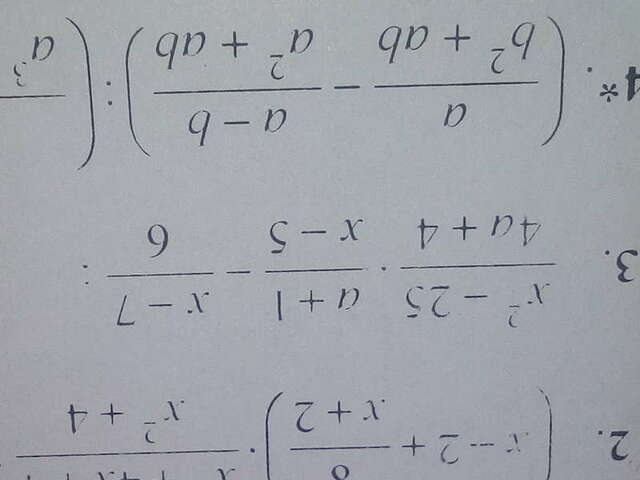 2. (x - 2 + 8/(x + 2)) · /(x² + 4)
3. (x² - 25)/(4a + 4) · (a + 1)/(x - 5) - (x - 7)/6 :
4*. (a/(b² + ab) - (a - b)/(a² + ab)) : ( /a³